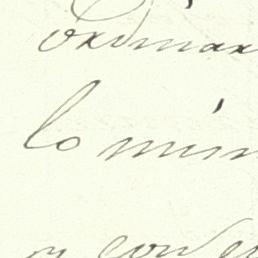 ordinar
lo mism
y con se